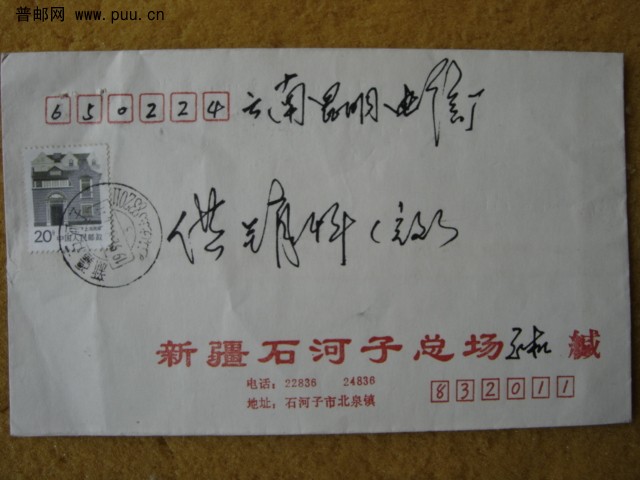 普邮网 www.puu.cn
650224 云南昆明电信厂
供肖科(收)
20分 中国人民邮政
新疆石河子总场 缄
电话：22836 24836
地址：石河子市北泉镇
832011